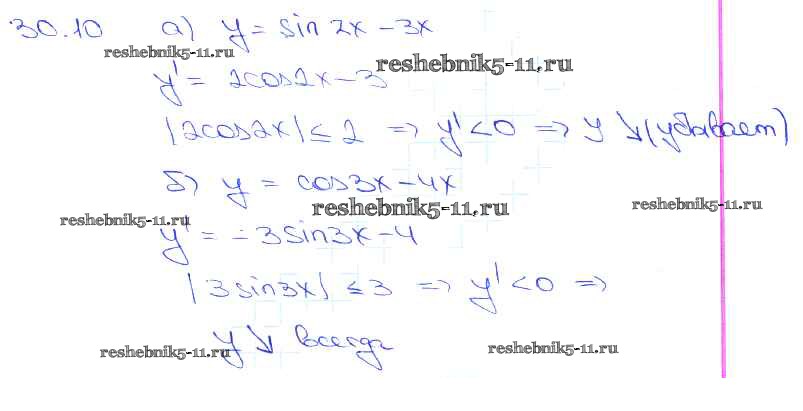 30.10 а) y = sin 2x - 3x
reshebnik5-11.ru
reshebnik5-11.ru
y' = 2cos2x - 3
|2cos2x| ≤ 2 => y' < 0 => y ↘ (убывает)
б) y = cos3x - 4x
reshebnik5-11.ru
reshebnik5-11.ru
reshebnik5-11.ru
y' = -3sin3x - 4
|3sin3x| ≤ 3 => y' < 0 =>
y ↘ всегда
reshebnik5-11.ru
reshebnik5-11.ru